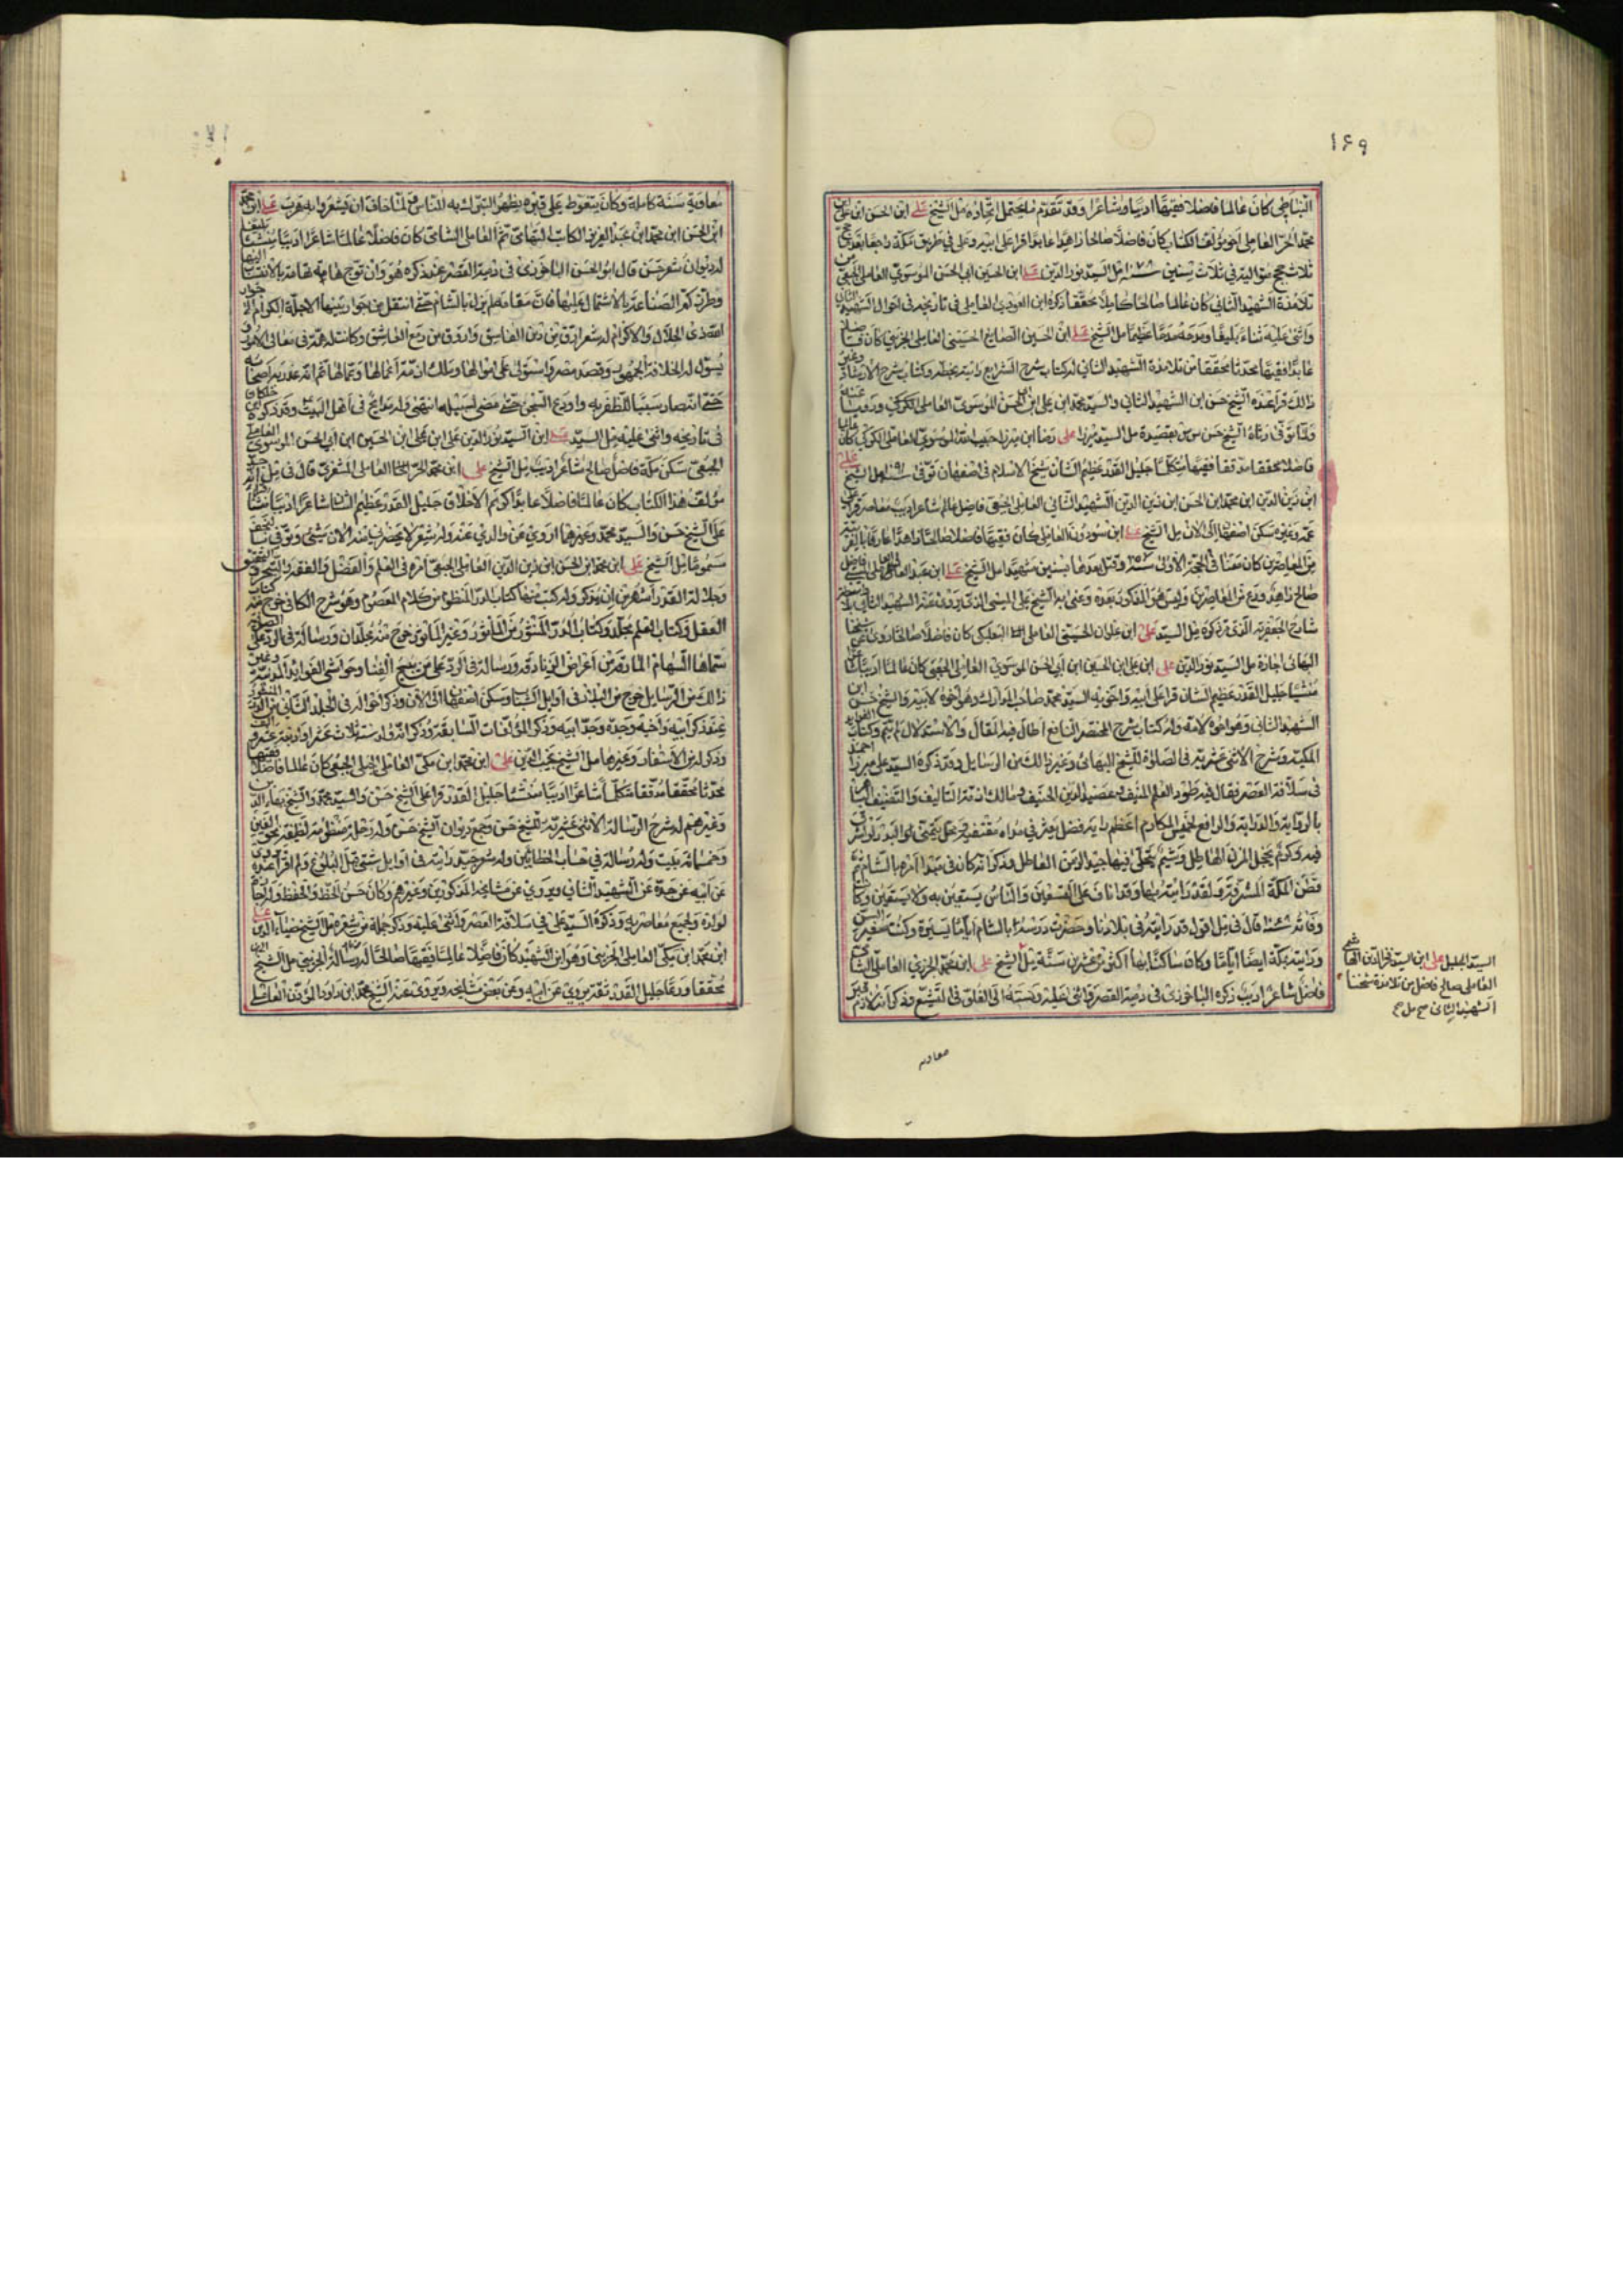 ١۶٩
النباطي كان عالما فاضلا فقيها اديبا وشاعرا وقد تقدم ما يحتمل اتحاده مل الشيخ علي ابن الحسن ابن علي ابن
محمد الحر العاملي اخو مؤلف الكتاب كان فاضلا صالحا زاهدا عابدا قرأ على ابيه وعلى في طريق مكة راجعا بعد حج
ثلاث حجج متوالية في ثلاث سنين سنة ١٠٧٨ مل السيد نور الدين علي ابن الحسين ابي الحسن الموسوي العاملي الجبعي من
تلامذة الشهيد الثاني كان عالما صالحا كاملا محققا ذكره ابن العودي العاملي في تاريخه في احوال الشهيد الثاني
واثنى عليه ثناء بليغا ومدحه مدحا عظيما مل الشيخ علي ابن الحسين الصايغ الحسيني العاملي الجزيني كان فاضلا
عابدا فقيها محدثا محققا من تلامذة الشهيد الثاني له كتاب شرح الشرايع رايته بخطه وكتاب شرح الارشاد وغير
ذالك قرأ عنده الشيخ حسن ابن الشهيد الثاني والسيد محمد ابن علي ابن ابي الحسن الموسوي العاملي الكركي ورويا عنه
ولما توفى رثاه الشيخ حسن بقصيدة مل السيد ميرزا علي رضا ابن ميرزا حبيب الله الموسوي العاملي الكركي كان
فاضلا محققا مدققا فقيها متكلما جليل القدر عظيم الشان شيخ الاسلام في اصفهان توفى سنة ١٠٩١ مل الشيخ علي
ابن زين الدين ابن محمد ابن الحسن ابن زين الدين الشهيد الثاني العاملي الجبعي فاضل عالم شاعر اديب معاصر قرأ على
عمه وغيره سكن اصفهان الى الان مل الشيخ علي ابن سودون العاملي كان فقيها فاضلا صالحا زاهدا عارفا بالعربية
من المعاصرين
صالح زاهد ورع من المعاصرين وليس هو المذكور بعده
شارح الجعفرية الذي ذكره مل السيد علي ابن علوان الحسيني العاملي البعلبكي كان فاضلا صالحا روى عن شيخنا
البهائي اجازة مل السيد نور الدين علي ابن علي ابن الحسين ابن ابي الحسن الموسوي العاملي الجبعي كان عالما اديبا شاعرا
منشيا جليل القدر عظيم الشان قرأ على ابيه واخويه السيد محمد صاحب المدارك وهو اخوه لابيه والشيخ حسن ابن
الشهيد الثاني وهو اخوه لامه وله كتاب شرح المختصر النافع اطال فيه المقال والاستدلال لم يتم وكتاب الفوايد
المكية وشرح الاثنى عشرية في الصلوة للشيخ البهائي وغير ذالك من الرسايل وقد ذكره السيد علي ميرزا احمد
في سلافة العصر فقال فيه طود العلم المنيف وعضد الدين الحنيف ومالك ازمة التاليف والتصنيف الباهر
بالرواية والدراية والرافع لخميس المكارم اعظم راية فضل يعثر في مداه مقتفيه ومحل يتمنى البدر لو اشرق
فيه وكرم يخجل المزن الهاطل وشيم يتحلى بها جيد الزمن العاطل وذكر انه كان في مبدا امره بالشام ثم
قطن المكة المشرفة ولقد رايته بها وقد اناف على التسعين والناس يستعين به ولا يستعين وكانت
وفاته سنة ١٠٦٨ قال في مل اقول قد رايته في بلادنا وحضرت درسه بالشام اياما يسيرة وكنت صغير السن
ورايته بمكة ايضا اياما وكان ساكنا بها اكثر من عشرين سنة مل الشيخ علي ابن محمد الحريري العاملي الشامي
فاضل شاعر اديب ذكره الباخرزي في دمية القصر واثنى عليه ونسبه الى الغلو في التشيع وذكر انه لازم قبر
السيد الجليل علي ابن السيد فخر الدين الهاشمي
العاملي صالح فاضل من تلامذة شيخنا
الشهيد الثاني صح مل
معاوية
معاوية سنة كاملة وكان يتغوط على قبره يظهر التبرك به للناس فلما خاف ان يشعروا به هرب علي ابن محمد
ابن الحسن ابن محمد ابن عبد العزيز الكاتب التهامي ثم العاملي الشامي كان فاضلا عالما شاعرا اديبا منشئا بليغا
له ديوان شعر حسن قال ابو الحسن الباخرزي في دمية القصر عند ذكره هو وان توج هامة تهامة بالانتساب اليها
وطرز كم الصناعة بالاشتمال عليها فان مقامه لم يزل بالشام حتى انتقل من جوار بنيها الاجلة الكرام الى جوار
الله ذي الجلال والاكرام له شعر ادق من دين الفاسق وارق من دمع العاشق وكانت له همة في معالي الامور
حتى انتصار سببا للظفر به واودع السجن حتى مضى لسبيله انتهى وله مدايح في اهل البيت ع وقد ذكره ابن خلكان
في تاريخه واثنى عليه مل السيد علي ابن السيد نور الدين علي ابن علي ابن الحسين ابن ابي الحسن الموسوي العاملي
الجبعي سكن مكة فاضل صالح شاعر اديب مل الشيخ علي ابن محمد الحر العاملي المشغري قال في مل انه جد
مؤلف هذا الكتاب كان عالما فاضلا عابدا كريم الاخلاق جليل القدر عظيم الشان شاعرا اديبا منشئا قرأ
على الشيخ حسن والسيد محمد وغيرهما اروي عن والدي عنه وله شعر لا يحضرني منه الان شيئ وتوفى بالنجف
مسموما مل الشيخ علي ابن محمد ابن الحسن ابن زين الدين العاملي الجبعي امره في العلم والفضل والفقه والتبحر والتحقيق
وجلالة القدر اشهر من ان يذكر وله كتب منها كتاب الدر المنظوم من كلام المعصوم وهو شرح الكافي خرج منه كتاب
العقل وكتاب العلم مجلد وكتاب الدر المنثور من المأثور وغير المأثور خرج منه مجلدان ورسالة في الرد على الصوفية
سماها السهام المارقة من اعراض الزنادقة ورسالة في الرد على من يبيح الغنا وحواشي الفوايد المدنية وغير
ذالك من الرسايل خرج من البلاد في اوايل الشباب وسكن اصفهان الى الان وذكر احواله في المجلد الثاني من الدر المنثور
عند ذكر ابيه واخيه وجده وجد ابيه وذكر المؤلفات السابقة وذكر انه ولد سنة ثلاث عشر او اربعة عشر والف
وذكر له من الاشعار وغيرها مل الشيخ نجيب الدين علي ابن محمد ابن مكي العاملي الجبلي الجبعي كان عالما فاضلا فقيها
محدثا محققا مدققا متكلما شاعرا اديبا منشئا جليل القدر قرأ على الشيخ حسن والسيد محمد والشيخ بهاء الدين
وغيرهم له شرح الرسالة الاثنى عشرية للشيخ حسن وجمع ديوان الشيخ حسن وله رحلة منظومة لطيفة نحو الفين
وخمسمائة بيت وله رسالة في حساب الخطائين وله شعر جيد رايته في اوايل سني قبل البلوغ ولم اقرأ عنده
عن ابيه عن جده عن الشهيد الثاني ويروي عن مشايخه المذكورين وغيرهم وكان حسن الخط والحفظ وله اجازة
لولده ولجميع معاصريه وذكره السيد علي في سلافة العصر واثنى عليه وذكر جملة من شعره مل الشيخ ضياء الدين علي
ابن محمد ابن مكي العاملي الجزيني وهو ابن الشهيد كان فاضلا عالما فقيها صالحا
محققا ورعا جليل القدر ثقة يروي عن ابيه وعن بعض مشايخه ويروي عنه الشيخ محمد ابن داود المؤذن العاملي